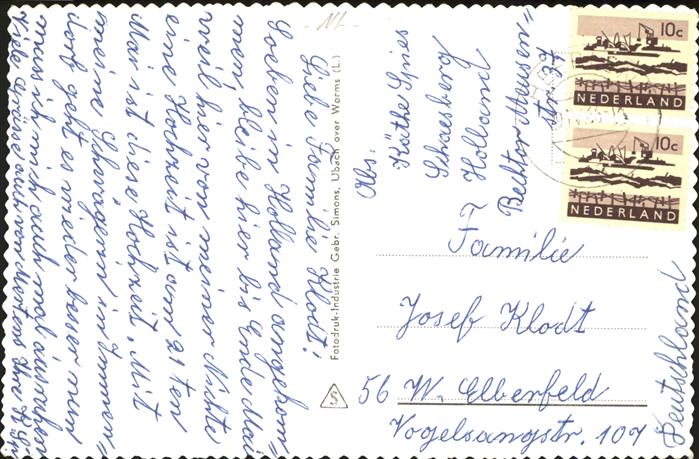 Liebe Familie Klodt!
Soeben in Holland angekom=
men, bleibe hier bis Ende Mai
weil hier von meiner Nichte
eine Hochzeit ist am 21 ten
Mai ist diese Hochzeit. Mit
meine Schwägerin in Immen=
dorf geht es wieder besser nun
muss ich mich auch mal ausruhen
Viele Grüsse auch von Mertens Ihre
Fotodruk-Industrie Gebr. Simons, Ubach over Worms (L.)
S
Abs:
Käthe Spies
Schaesberg
Holland
Rector
str. 27
10c
NEDERLAND
10c
NEDERLAND
Familie
Josef Klodt
56 W. Elberfeld
Vogelsangstr. 107
Deutschland